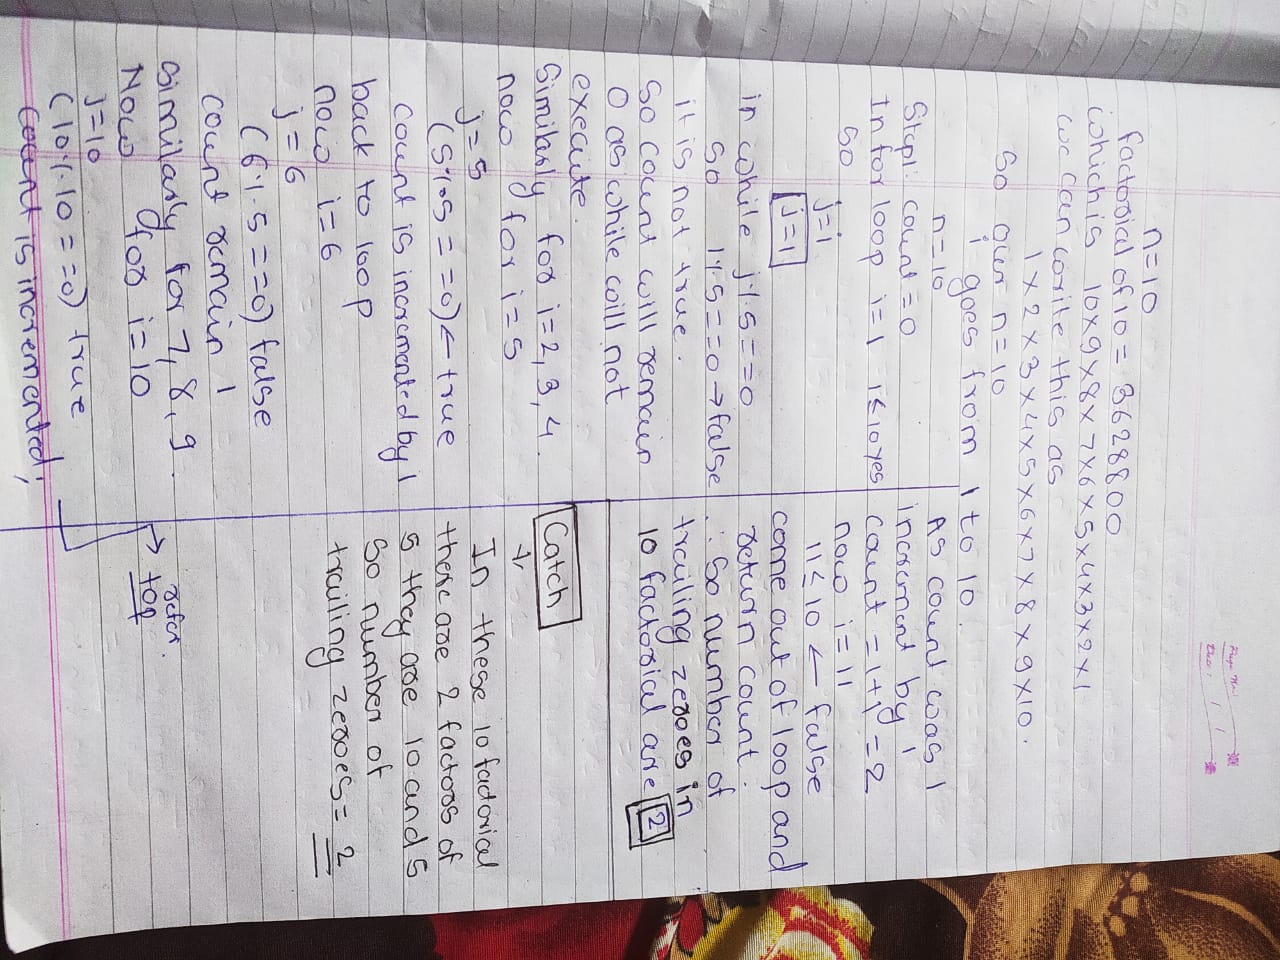 n=10
factorial of 10 = 3628800
which is 10x9x8x7x6x5x4x3x2x1
we can write this as
1 x 2 x 3 x 4 x 5 x 6 x 7 x 8 x 9 x 10.
So our n=10
i goes from 1 to 10.
n=10
Step1: count = 0
In for loop i=1 i≤10 yes
so
j=i
j=1
in while j%5==0
so 1%5==0 → false
it is not true.
So count will remain
0 as while will not
execute.
Similarly for i=2,3,4.
now for i=5
j=5
(5%5==0) ← true
count is incremented by 1
back to loop
now i=6
j=6
(6%5==0) false
count remain 1
similarly for 7,8,9.
Now for i=10
j=10
(10%10==0) true
count is incremented;
refer
top
As count was 1
increment by 1
count = 1+1 = 2
now i=11
11≤10 ← false
come out of loop and
return count.
∴ So number of
trailing zeroes in
10 factorial are 2
Catch
In these 10 factorial
there are 2 factors of
5 they are 10 and 5
So number of
trailing zeroes = 2